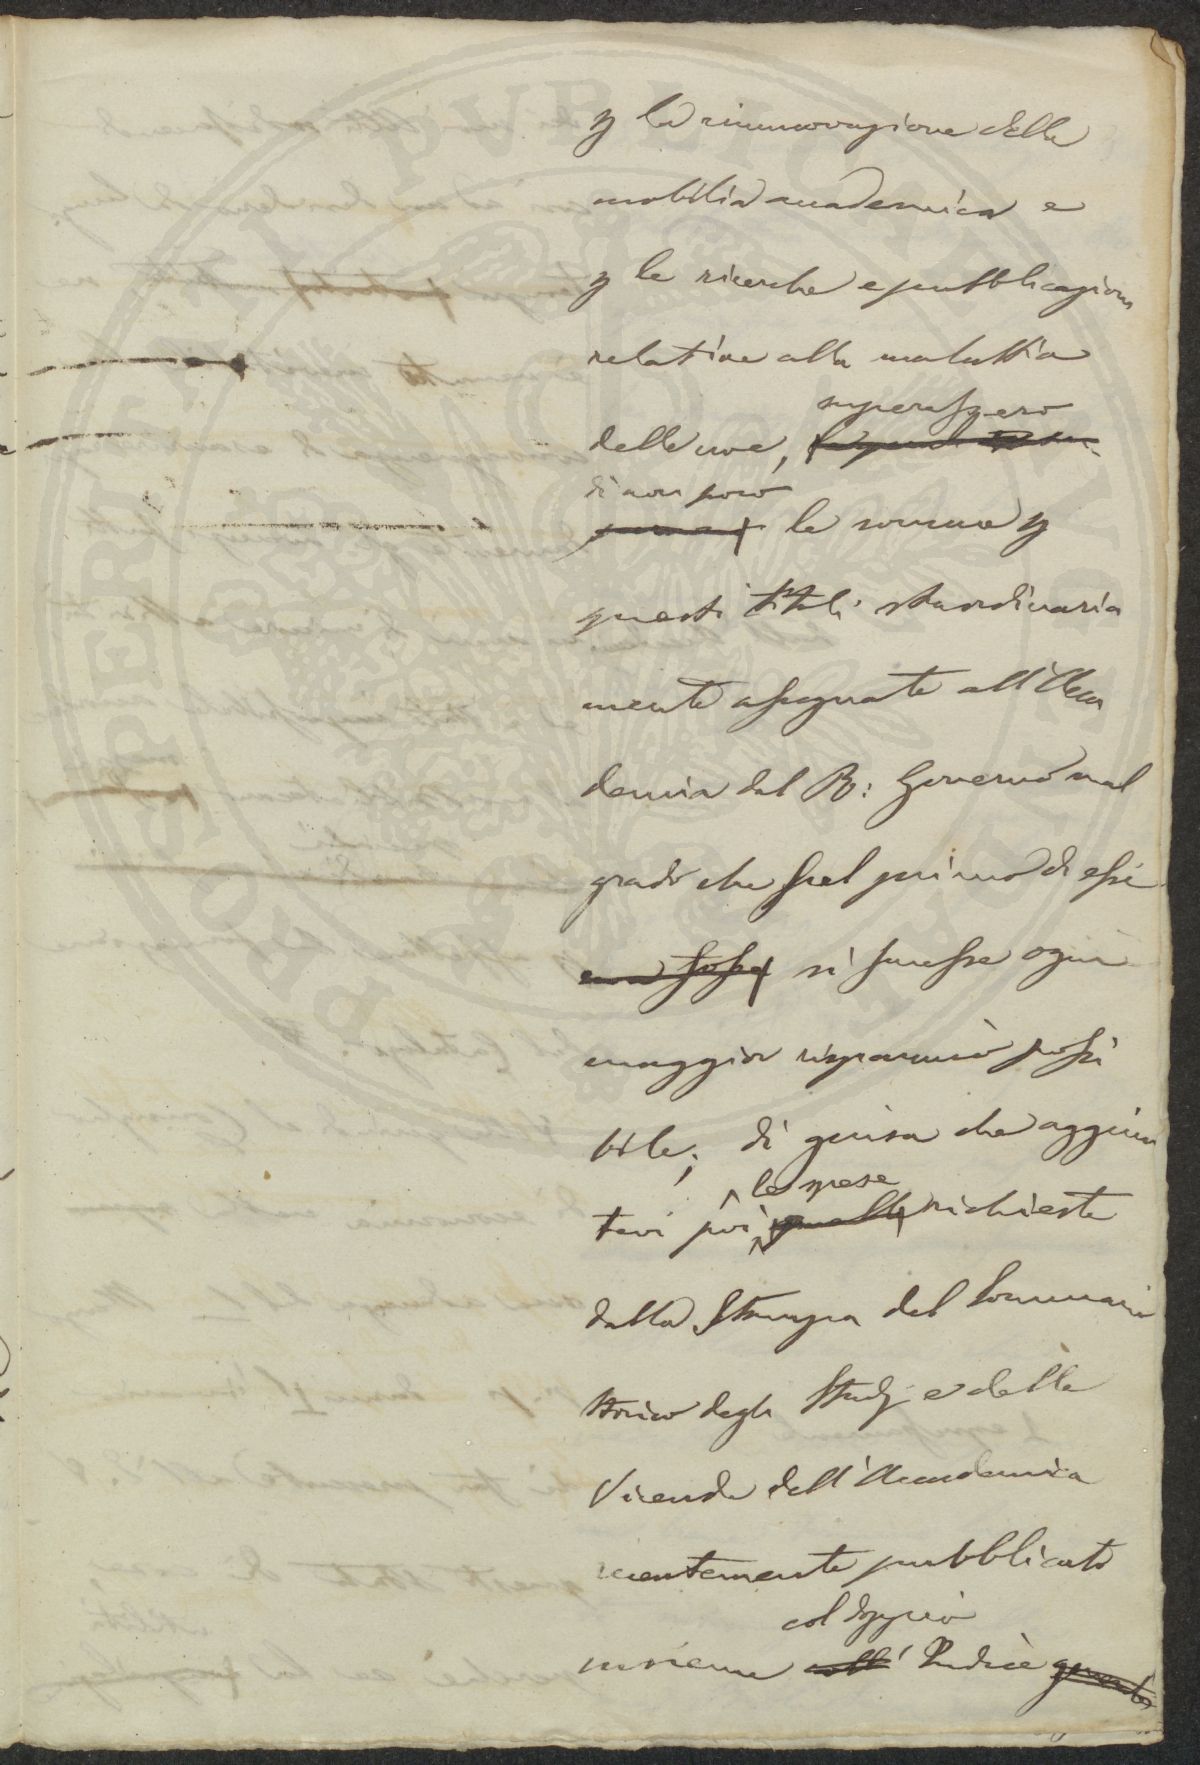 p la rinnovazione della
mobilia accademica e
p le ricerche e pubblicazioni
relative alla malattia
superassero
delle uve,
di non poco
le somme p
questi titoli straordinaria
mente assegnate all'Acca
demia dal R: Governo mal
grado che pel primo di essi
era fosse si facesse ogni
maggior risparmio possi
bile; di guisa che aggiun
le spese
tevi poi quelle richieste
dalla Stampa del Sommario
storico degli Studj e delle
Vicende dell'Accademia
recentemente pubblicato
col doppio
insieme coll' Indice